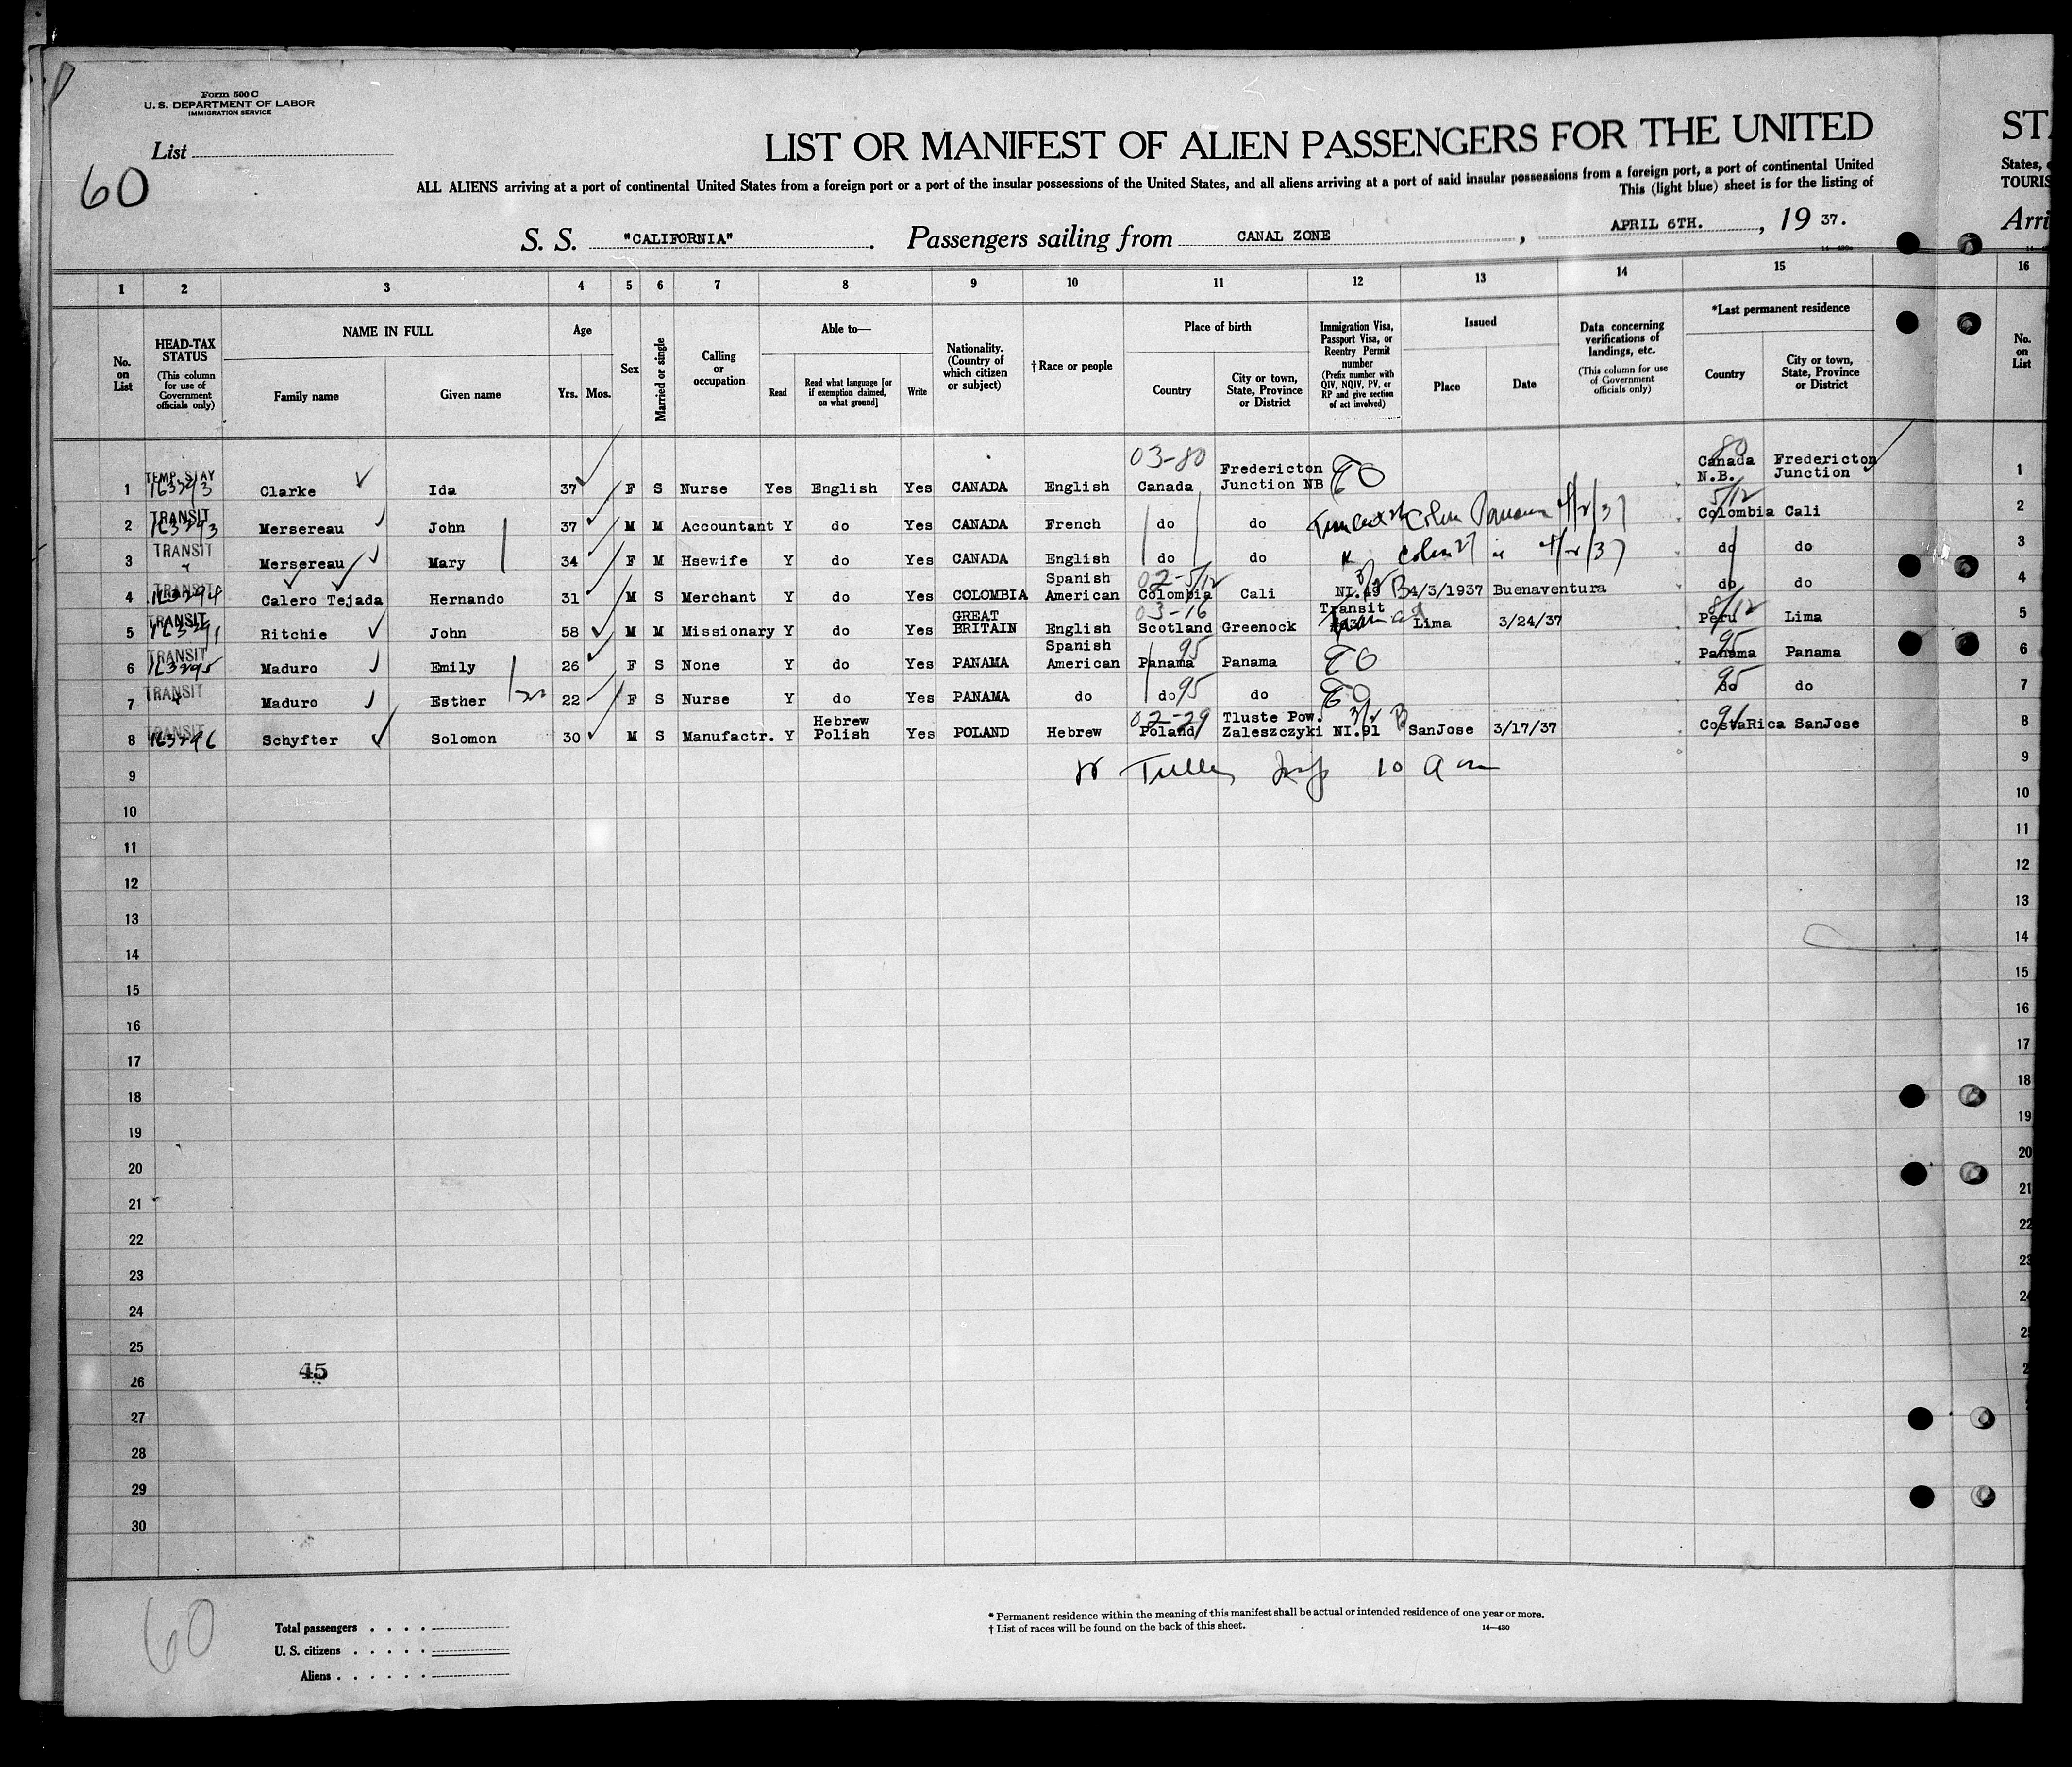 Form 500 C
U. S. DEPARTMENT OF LABOR
IMMIGRATION SERVICE
List
60
LIST OR MANIFEST OF ALIEN PASSENGERS FOR THE UNITED
ALL ALIENS arriving at a port of continental United States from a foreign port or a port of the insular possessions of the United States, and all aliens arriving at a port of said insular possessions from a foreign port, a port of continental United
This (light blue) sheet is for the listing of
S. S. "CALIFORNIA" . Passengers sailing from CANAL ZONE , APRIL 6TH. , 19 37.
ST
States,
TOURIS
Arri
1 2 3 4 5 6 7 8 9 10 11 12 13 14 15 16
No. on List
HEAD-TAX STATUS (This column for use of Government officials only)
NAME IN FULL Family name Given name
Age Yrs. Mos.
Sex
Married or single
Calling or occupation
Able to— Read Read what language [or if exemption claimed, on what ground] Write
Nationality. (Country of which citizen or subject)
† Race or people
Place of birth Country City or town, State, Province or District
Immigration Visa, Passport Visa, or Reentry Permit number (Prefix number with QIV, NQIV, PV, or RP and give section of act involved)
Issued Place Date
Data concerning verifications of landings, etc. (This column for use of Government officials only)
*Last permanent residence Country City or town, State, Province or District
No. on List
1 TEMP. STAY 163293 Clarke Ida 37 F S Nurse Yes English Yes CANADA English 03-80 Canada Fredericton Junction NB 80 Canada N.B. Fredericton Junction 1
2 TRANSIT 163293 Mersereau John 37 M M Accountant Y do Yes CANADA French do do Colon Panama 4/2/37 5/12 Colombia Cali 2
3 TRANSIT " Mersereau Mary 34 F M Hsewife Y do Yes CANADA English do do " Colon 27 4/2/37 do do 3
4 TRANSIT 163294 Calero Tejada Hernando 31 M S Merchant Y do Yes COLOMBIA Spanish American 02-5/12 Colombia Cali 3/2 NI.49 B 4/3/1937 Buenaventura do do 4
5 TRANSIT 163291 Ritchie John 58 M M Missionary Y do Yes GREAT BRITAIN English 03-16 Scotland Greenock Transit Lima 3/24/37 8/12 Peru Lima 5
6 TRANSIT 163295 Maduro Emily 26 F S None Y do Yes PANAMA Spanish American 95 Panama Panama 95 Panama Panama 6
7 TRANSIT " Maduro Esther 22 F S Nurse Y do Yes PANAMA do do 95 do 95 do do 7
8 TRANSIT 163296 Schyfter Solomon 30 M S Manufactr. Y Hebrew Polish Yes POLAND Hebrew 02-29 Poland Tluste Pow. Zaleszczyki 3/2 NI.91 B SanJose 3/17/37 91 CostaRica SanJose 8
9 10 a m 9
10 10
11 11
12 12
13 13
14 14
15 15
16 16
17 17
18 18
19 19
20 20
21 21
22 22
23 23
24 24
25
26
27
28
29
30
45
60
Total passengers
U. S. citizens
Aliens
* Permanent residence within the meaning of this manifest shall be actual or intended residence of one year or more.
† List of races will be found on the back of this sheet.
14—430